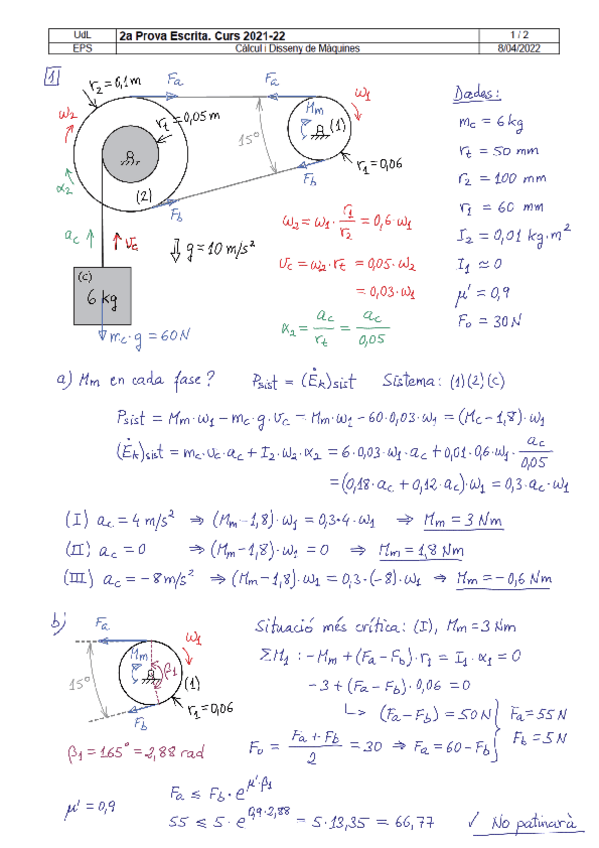 UdL 2a Prova Escrita. Curs 2021-22 1 / 2
EPS Càlcul i Disseny de Màquines 8/04/2022
1
r₂=0,1m
Fa
Fa
ω₁
Mm
(1)
ω₂
rt=0,05m
15°
r₁=0,06
(2)
α₂
Fb
Fb
ac
vc
g=10 m/s²
(c)
6 kg
mc·g=60N
ω₂=ω₁·r₁/r₂=0,6·ω₁
vc=ω₂·rt=0,05·ω₂
=0,03·ω₁
α₂=ac/rt=ac/0,05
Dades:
mc = 6kg
rt = 50 mm
r₂ = 100 mm
r₁ = 60 mm
I₂ = 0,01 kg·m²
I₁ ≃ 0
μ' = 0,9
Fo = 30N
a) Mm en cada fase? Psist = (Ėk)sist Sistema: (1)(2)(c)
Psist = Mm·ω₁ - mc·g·vc = Mm·ω₁ - 60·0,03·ω₁ = (Mc-1,8)·ω₁
(Ėk)sist = mc·vc·ac + I₂·ω₂·α₂ = 6·0,03·ω₁·ac + 0,01·0,6·ω₁·ac/0,05
=(0,18·ac + 0,12·ac)·ω₁ = 0,3·ac·ω₁
(I) ac=4 m/s² ⇒ (Mm-1,8)·ω₁ = 0,3·4·ω₁ ⇒ Mm = 3 Nm
(II) ac=0 ⇒ (Mm-1,8)·ω₁ = 0 ⇒ Mm = 1,8 Nm
(III) ac=-8m/s² ⇒ (Mm-1,8)·ω₁ = 0,3·(-8)·ω₁ ⇒ Mm = -0,6 Nm
b)
Fa
ω₁
Mm
β₁
15°
(1)
r₁=0,06
Fb
β₁=165°=2,88 rad
Situació més crítica: (I), Mm=3Nm
ΣM₁: -Mm+(Fa-Fb)·r₁ = I₁·α₁ = 0
-3+(Fa-Fb)·0,06 = 0
↳ (Fa-Fb) = 50N
Fo = Fa+Fb/2 = 30 ⇒ Fa=60-Fb
Fa=55N
Fb=5N
μ'=0,9
Fa ≤ Fb·e^μ'·β₁
55 ≤ 5·e^0,9·2,88 = 5·13,35 = 66,77 ✓ No patinarà